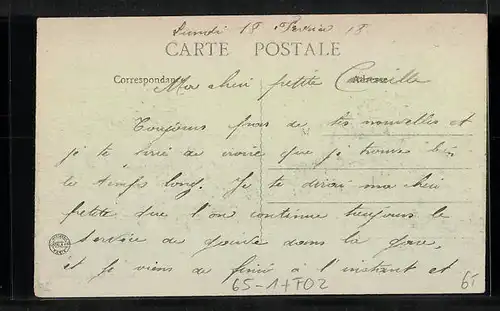 Lundi 18 Février 18
CARTE POSTALE
Correspondance Adresse
Ma cheri petite Camille
Toujours pas de tes nouvelles et
je te prie de croire que je trouve bien
le temps long. Je te dirai ma cheri
petite que l'on continue toujours le
service de garde dans la gare,
et je viens de finir à l'instant et
65-1+TO2 6f